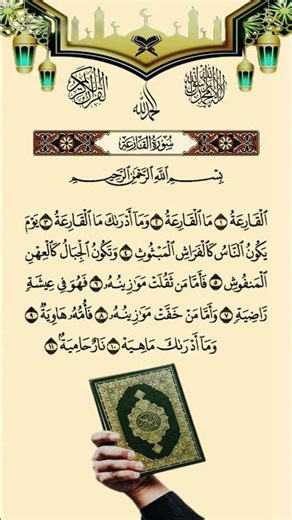 القرآن الكريم
الحمد لله
لا إله إلا الله محمد رسول الله
سُورَةُ القَارِعَة
بِسْمِ اللَّهِ الرَّحْمَٰنِ الرَّحِيمِ
الْقَارِعَةُ ١ مَا الْقَارِعَةُ ٢ وَمَا أَدْرَىٰكَ مَا الْقَارِعَةُ ٣ يَوْمَ
يَكُونُ النَّاسُ كَالْفَرَاشِ الْمَبْثُوثِ ٤ وَتَكُونُ الْجِبَالُ كَالْعِهْنِ
الْمَنفُوشِ ٥ فَأَمَّا مَن ثَقُلَتْ مَوَٰزِينُهُۥ ٦ فَهُوَ فِي عِيشَةٍ
رَّاضِيَةٍ ٧ وَأَمَّا مَنْ خَفَّتْ مَوَٰزِينُهُۥ ٨ فَأُمُّهُۥ هَاوِيَةٌ ٩
وَمَا أَدْرَىٰكَ مَا هِيَهْ ١٠ نَارٌ حَامِيَةٌ ١١